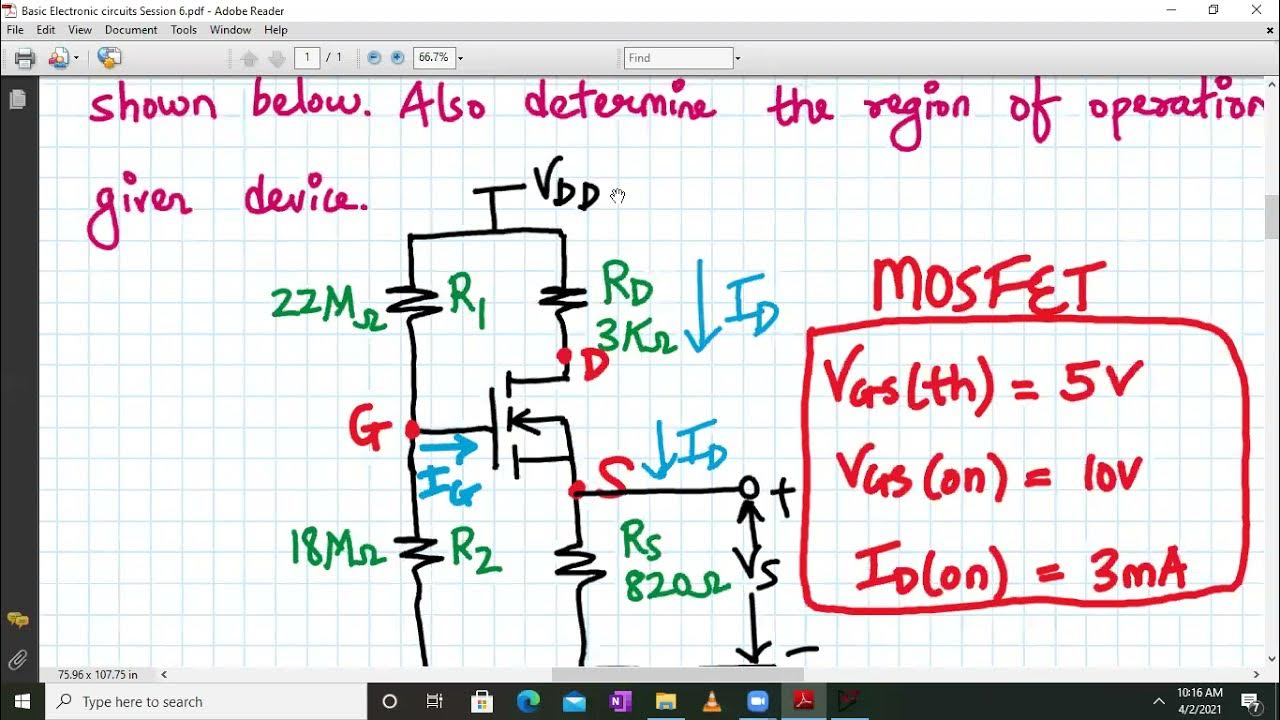 Basic Electronic circuits Session 6.pdf - Adobe Reader
File Edit View Document Tools Window Help
1 / 1 66.7% Find
shown below. Also determine the region of operation
given device.
VDD
22MΩ R1 RD ID
3KΩ
MOSFET
D
VGS(th) = 5V
G
ID
S +
IG
VGS(on) = 10V
18MΩ R2 RS VS
820Ω
ID(on) = 3mA
–
75.96 x 107.75 in
Type here to search
10:16 AM
4/2/2021
7